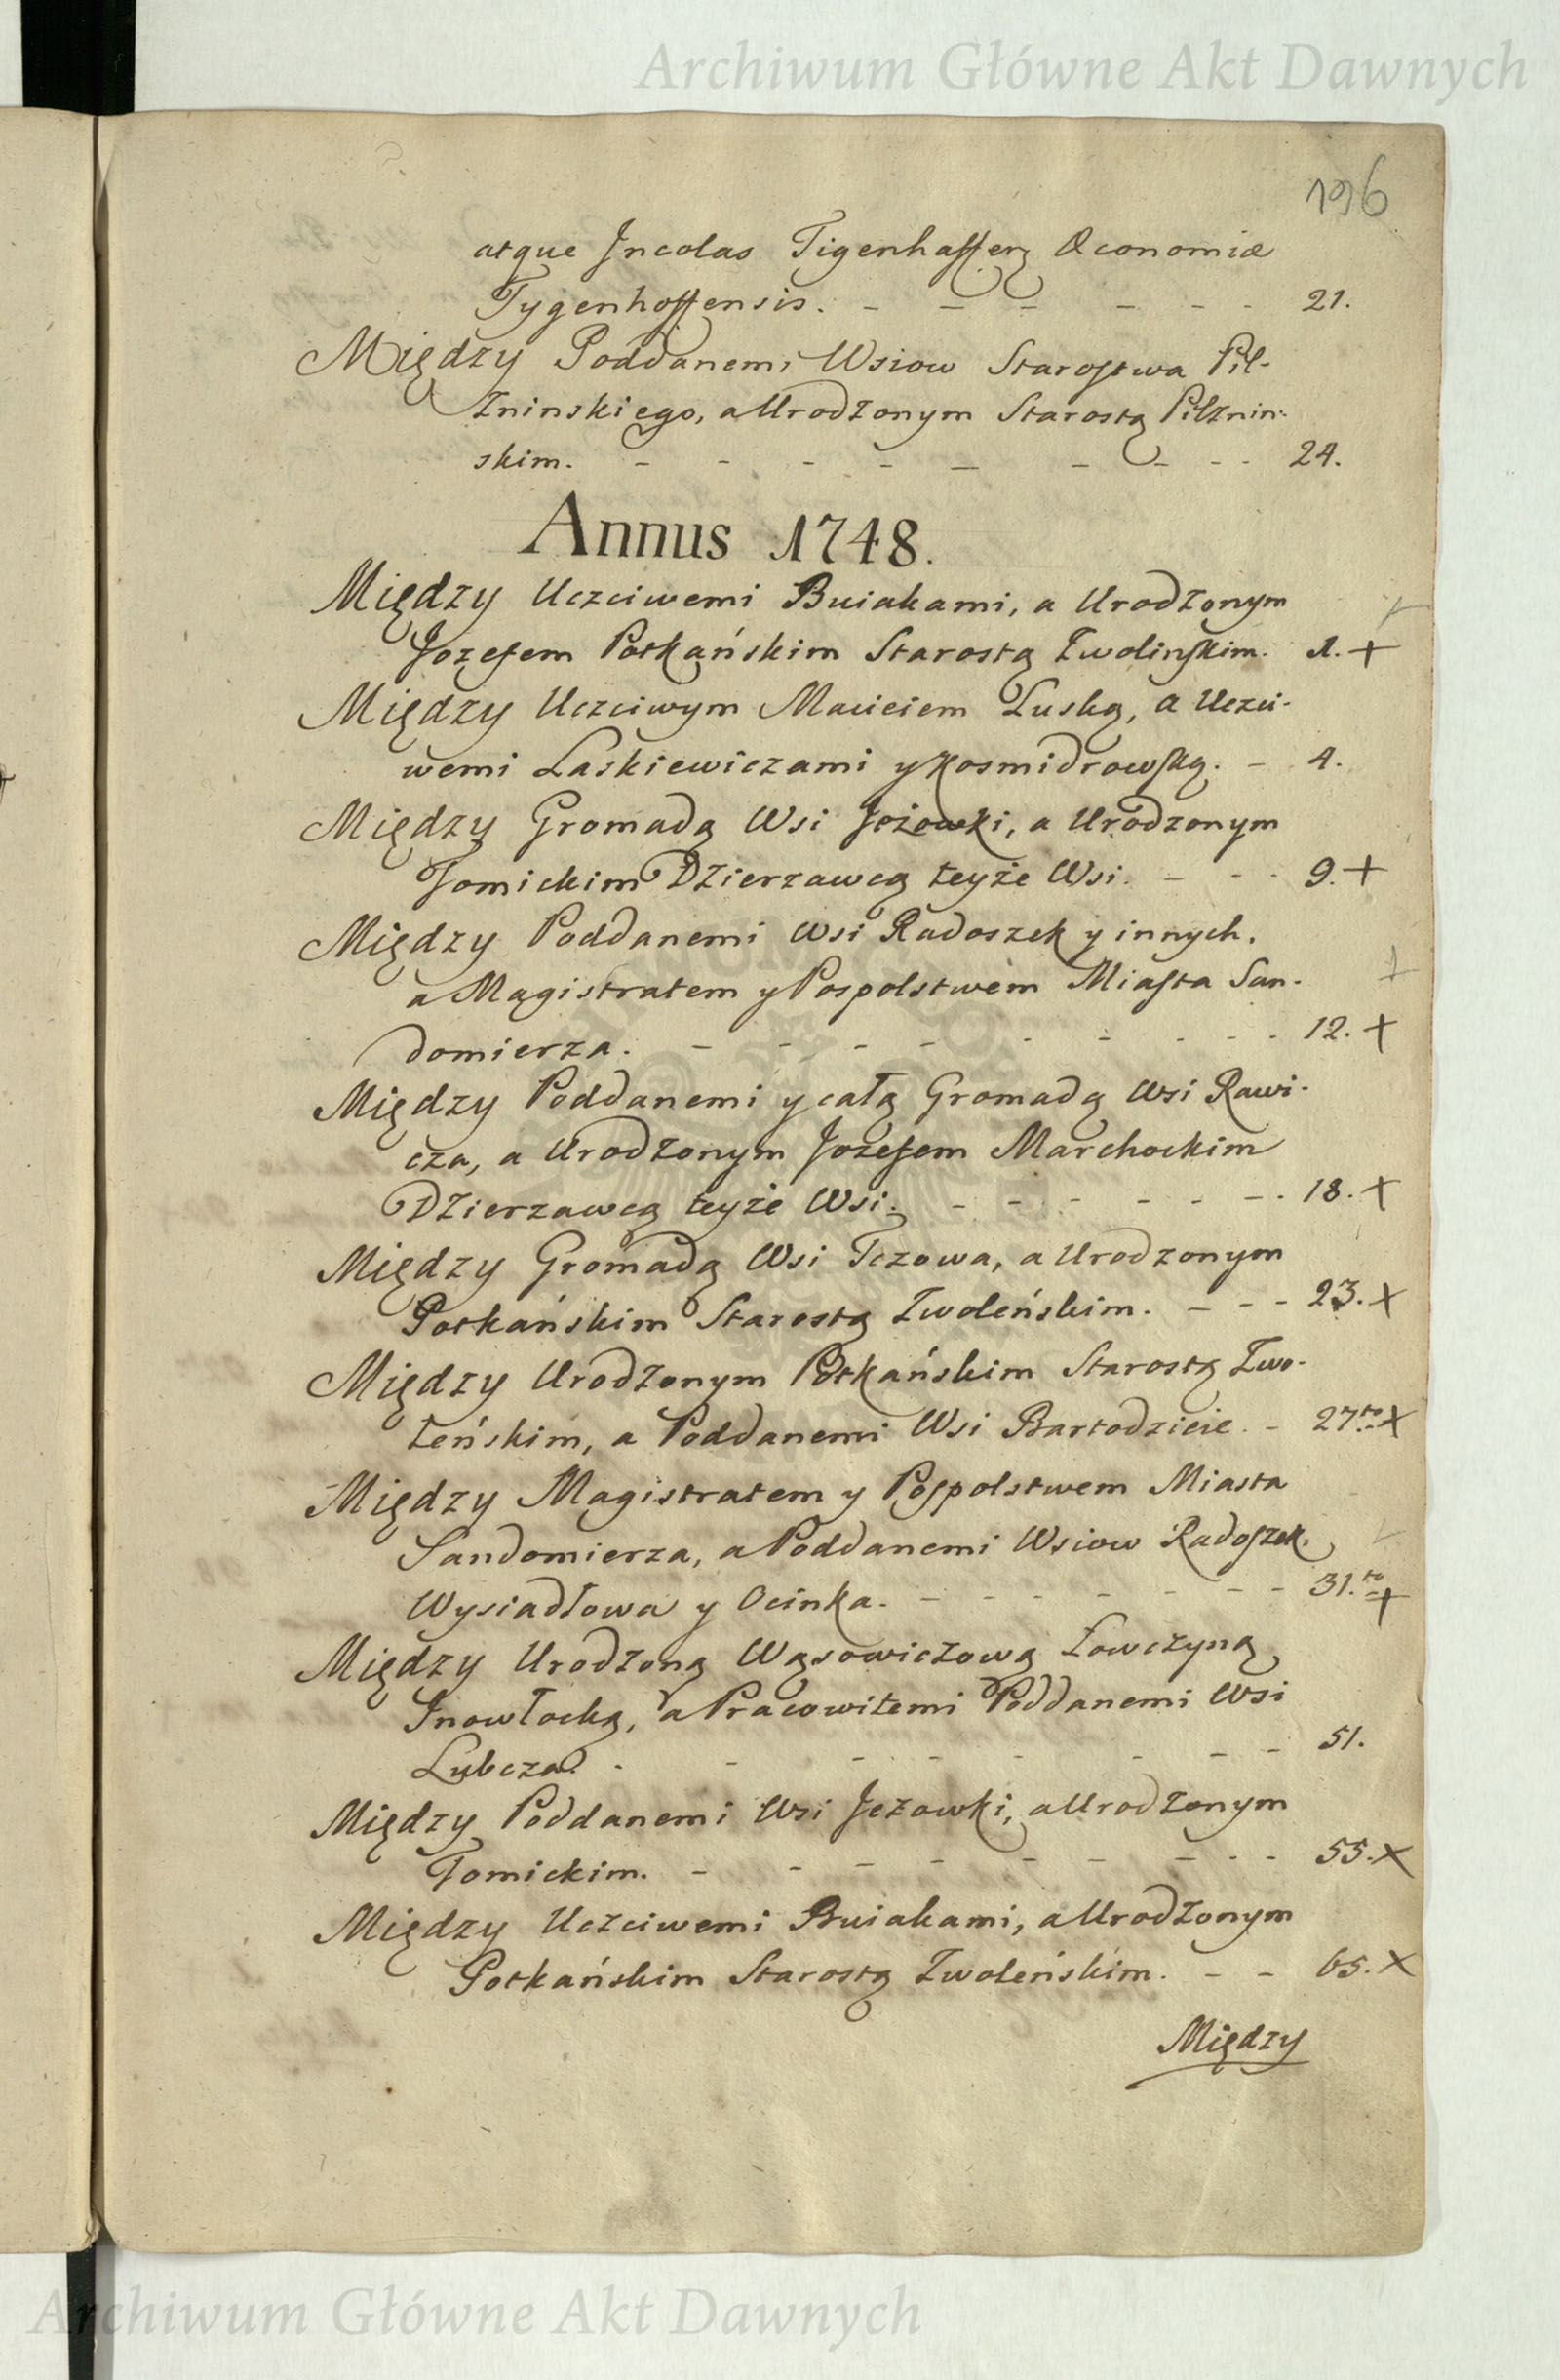 Archiwum Główne Akt Dawnych
196
atque Incolas Tigenhoffen Œconomiæ
Tygenhoffensis. - - - - - - 21.
Między Poddanemi Wsiow Starostwa Pil-
zninskiego, a Urodzonym Starostą Pilznin-
skim. - - - - - - - - - 24.
Annus 1748.
Między Uczciwemi Buiakami, a Urodzonym
Jozefem Potkańskim Starostą Zwolinskim. 1. +
Między Uczciwym Macieiem Łuską, a Uczci-
wemi Laskiewiczami y Kosmidrowską. - 4.
Między Gromadą Wsi Jeżowki, a Urodzonym
Tomickim Dzierzawcą teyże Wsi. - - - 9. +
Między Poddanemi Wsi Radoszek y innych,
a Magistratem y Pospolstwem Miasta San-
domierza. - - - - - - - - - 12. +
Między Poddanemi y całą Gromadą Wsi Rawi-
cza, a Urodzonym Jozefem Marchockim
Dzierzawcą teyże Wsi. - - - - - - 18. +
Między Gromadą Wsi Tczowa, a Urodzonym
Potkańskim Starostą Zwoleńskim. - - - 23. x
Między Urodzonym Potkańskim Starostą Zwo-
leńskim, a Poddanemi Wsi Bartodzieie. - 27.to x
Między Magistratem y Pospolstwem Miasta
Sandomierza, a Poddanemi Wsiow Radoszek,
Wysiadłowa y Ocinka. - - - - - - 31.to +
Między Urodzoną Wąsowiczową Łowczyną
Inowłocką, a Pracowitemi Poddanemi Wsi
Lubcza. - - - - - - - - 51.
Między Poddanemi Wsi Jeżowki, a Urodzonym
Tomickim. - - - - - - - - - 55. x
Między Uczciwemi Buiakami, a Urodzonym
Potkańskim Starostą Zwoleńskim. - - 65. x
Między
Archiwum Główne Akt Dawnych